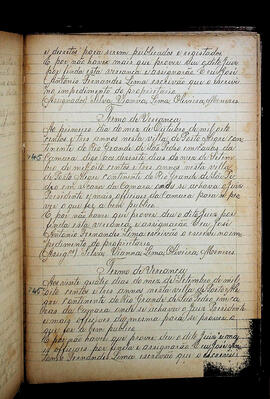 e direitos para serem publicados e registados
E por não haver mais que prover deu o dito Juiz
por finda esta vereança e assignarão. Eu José
Antonio Fernandes Lima escrivão que o escrevi
no impedimento do proprietario
(Assignados) Silva, Vianna, Lima, Oliveira, Menezes
Termo de Vereança
Ao primeiro dia do mez de Outubro de mil oito
centos e tres annos nesta villa de Porto Alegre con-
tinente do Rio Grande de São Pedro em casas da
Camara digo aos dias do mez de
de mil oito centos e tres annos nesta villa
de Porto Alegre continente do Rio Grande de São Pe-
dro em casas da Camara onde se achava o Juiz
Presidente e mais officiaes da camara para se pro-
ver o que fez a bem publico
E por não haver que prover deu o dito Juiz por
finda esta vereança e assignarão. Eu José
Antonio Fernandes Lima escrivão o escrevi no im-
pedimento do proprietario
(Assig.) Silva, Vianna, Lima, Oliveira, Menezes
Termo de Vereança
Aos vinte quatro dias do mez de Setembro de mil
oito centos e tres annos nesta villa de Porto Ale-
gre continente do Rio Grande de São Pedro em ca-
sas da Camara onde se achava o Juiz Presidente
e mais officiaes da mesma para se prover o
que fez a bem publico
E por não haver que prover deu o dito Juiz e ma-
is officiaes por finda e assignarão Eu José An-
tonio Fernandes Lima escrivão que o escrevi